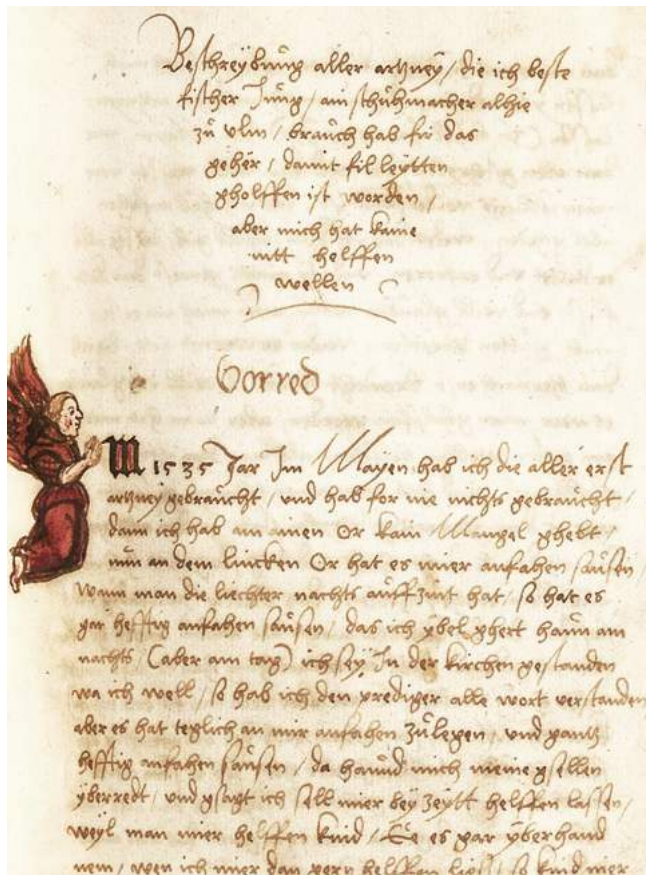 Beschreybung aller artzney / die ich beste
fischer Jung / ain schuhmacher alhie
zu vlm / brauch hab fir das
geher / damit fil leytten
gholffen ist worden /
aber mich hat kaine
nitt helffen
wellen
Vorred
M 1535 Jar Im Mayen hab ich die aller erst
artzney gebraucht / und hab for nie nichts gebraucht /
dann ich hab an ainen Or kain Mangel ghebt /
nun an dem lincken Or hat es mier anfahen sausen /
wann man die liechter nachts auffzint hat / so hat es
gar hefftig anfahen sausen / das ich ybel ghert haun am
nachts / (aber am tag) ich sey In der kirchen gestanden
wa ich well / so hab ich den prediger alle wort verstanden
aber es hat teglich an mir anfahen zulegen / und gantz
hefftig anfahen sausen / da hannd mich meine gsellen
yberredt / und gsagt ich sell mier bey zeytt helffen lassen /
weyl man mier helffen kind / Ee es gar yberhand
nem / wen ich mier dan gern helffen ließ / so kind mer